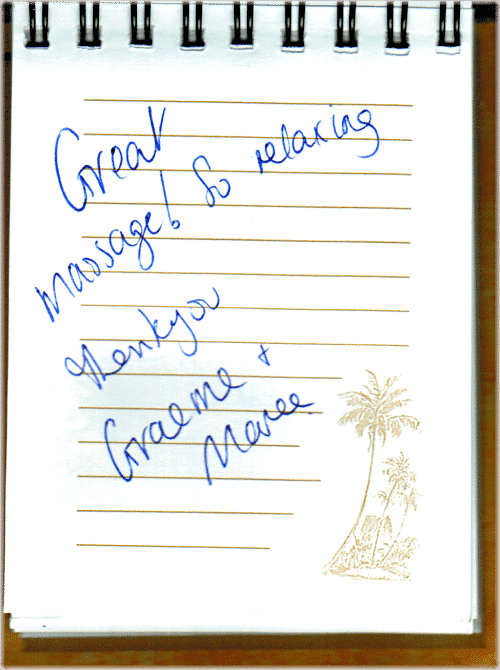 Great
Massage! So relaxing
Thenkyou
Graeme +
Maree